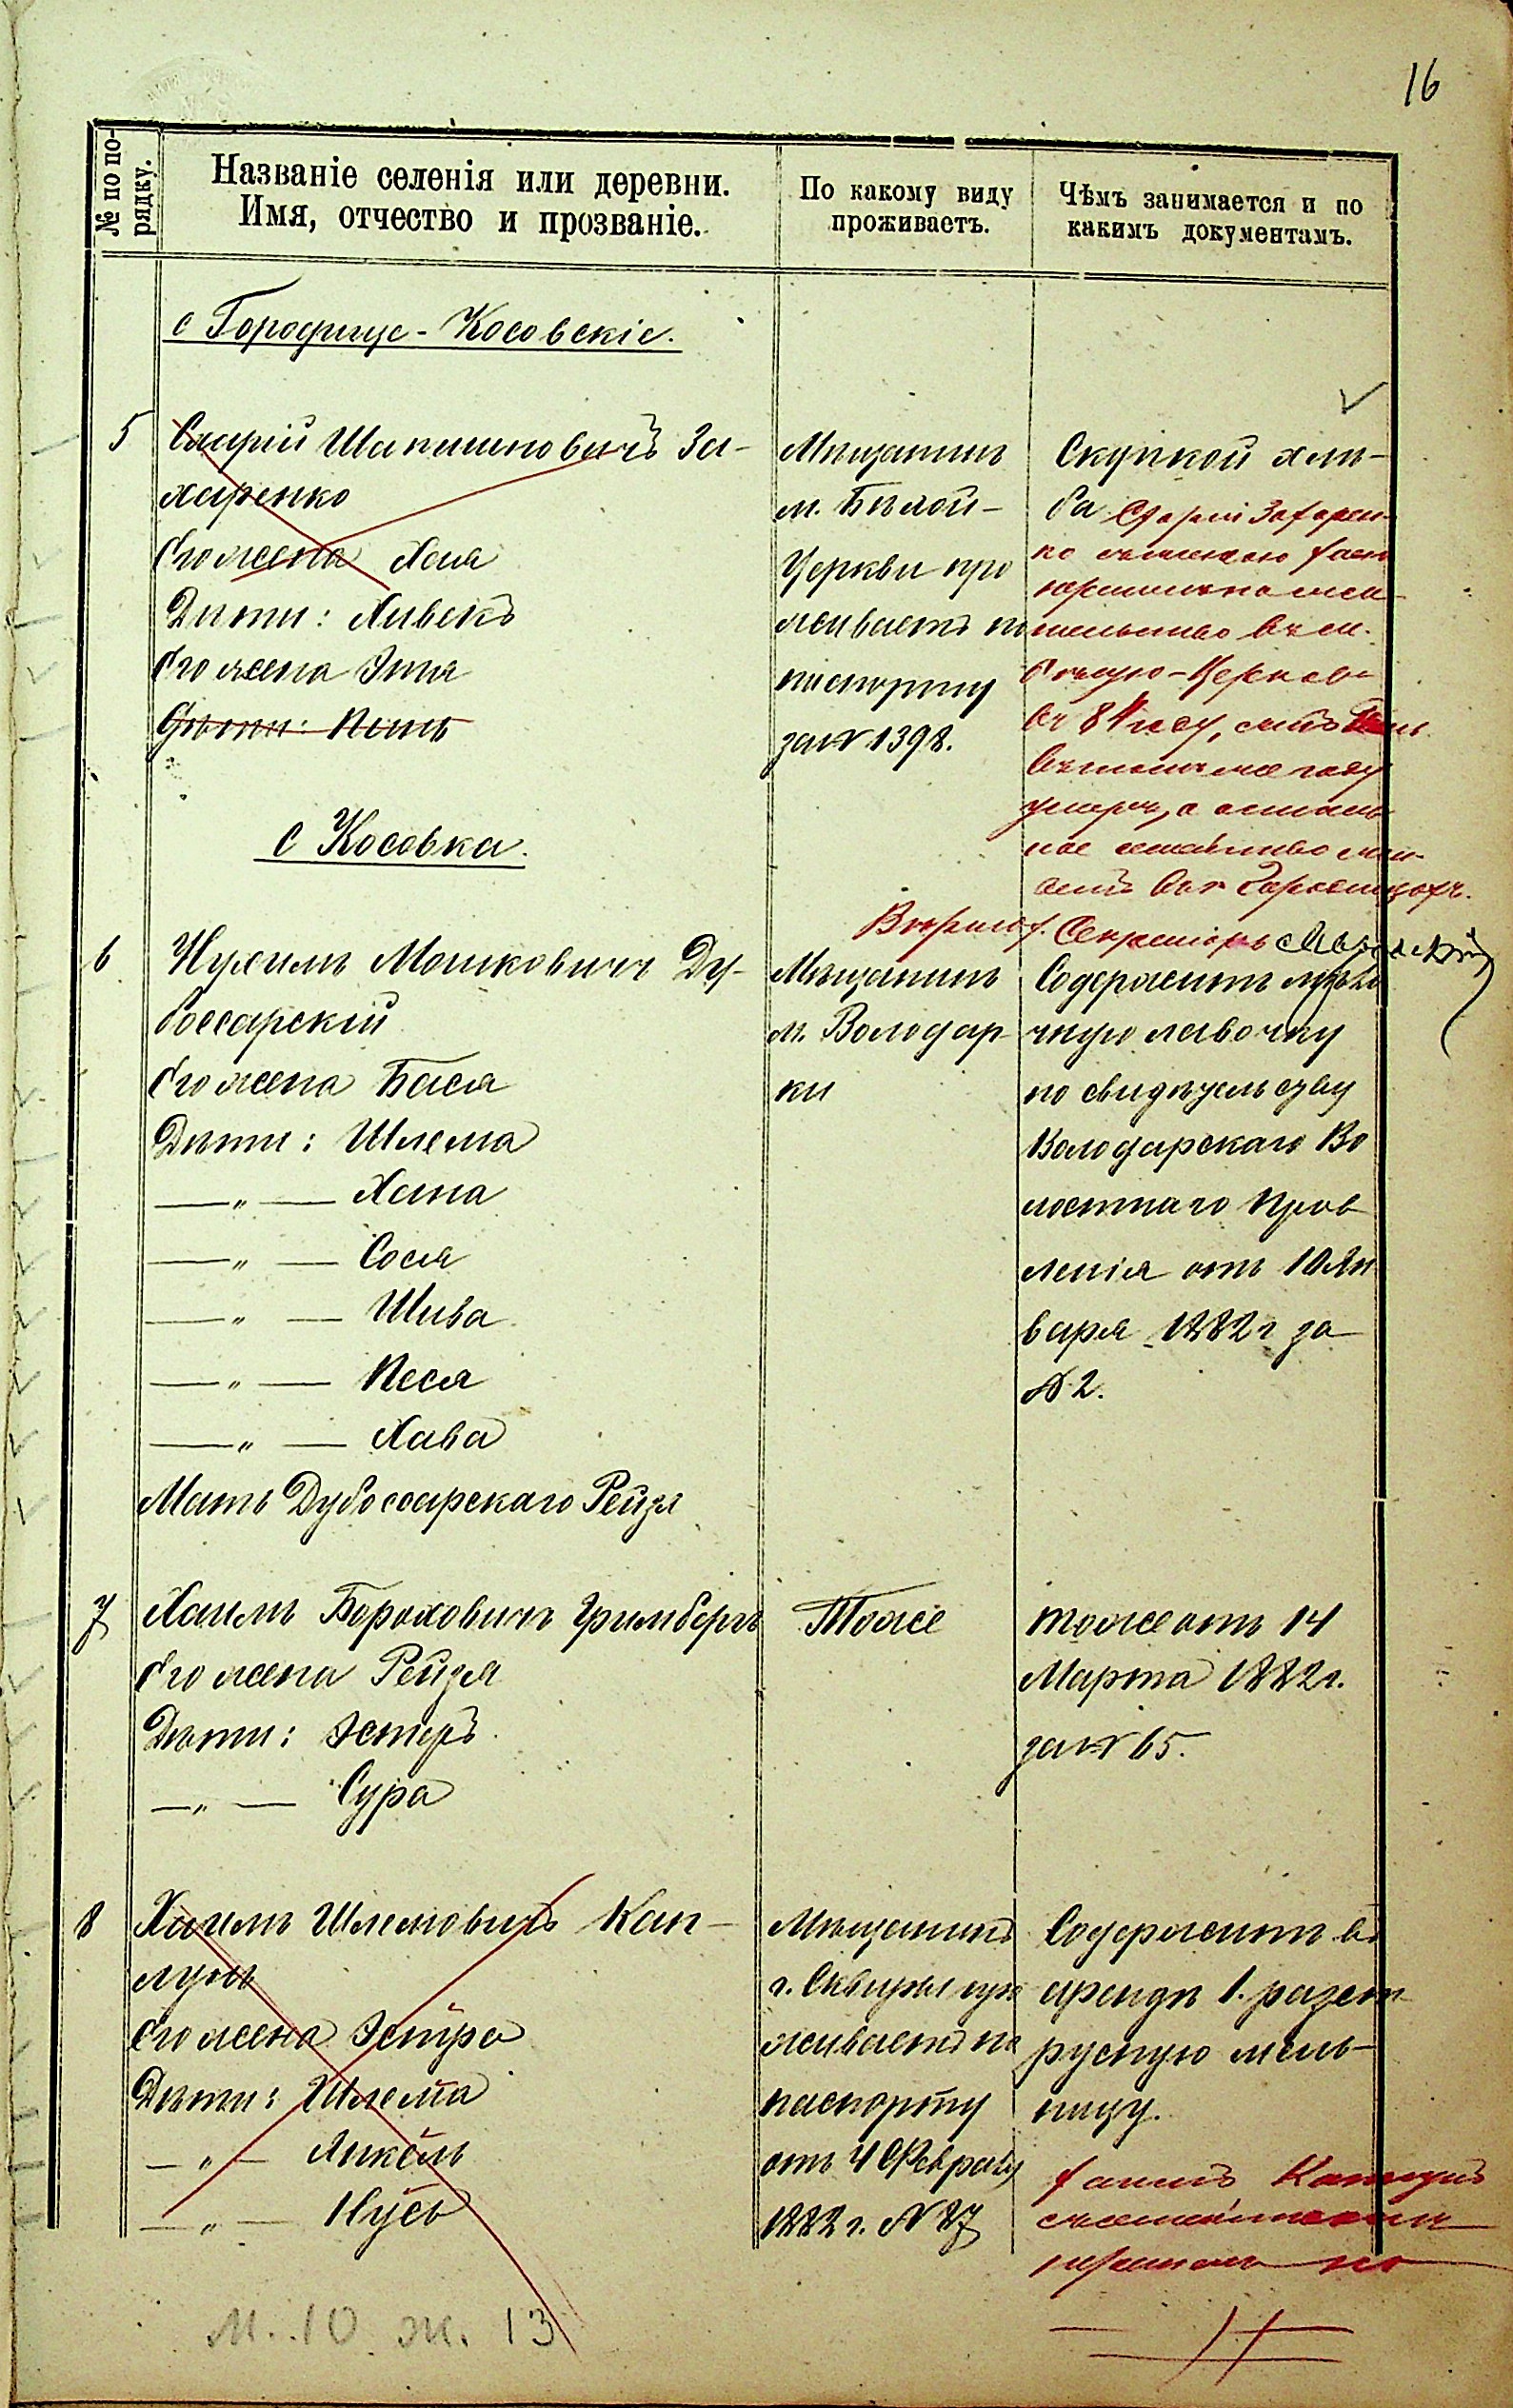 16
№ по по-
рядку.
Названіе селенія или деревни.
Имя, отчество и прозваніе.
По какому виду
проживаетъ.
Чѣмъ занимается и по
какимъ документамъ.
с Городище-Косовскіе.
5
Шапшновичъ За-
харенко
Его жена Хая
Дѣти: Ливекъ
Его жена Этя
Мѣщанинъ
м. Бѣлой-
Церкви про
живаетъ по
паспорту
за № 1398.
Скупкой хлѣ-
ба
Захарен-
ко съ женою
въ м.
Бѣлую-Церковь
въ 8 году, сынъ
въ томъ же году
умеръ, а осталь
ное семейство
Вѣрно: Секретарь
с Косовка.
6
Нухимъ Мошковичъ Ду-
боссарскій
Его жена Бася
Дѣти: Шлема
—„— Хана
—„— Сося
—„— Шива
—„— Песя
—„— Хава
Мать Дубоссарскаго Рейзя
Мѣщанинъ
м. Володар-
ки
Содержитъ
чную лавочку
по свидѣтельству
Володарскаго Во
лостнаго Прав
ленія отъ 10 Ян
варя 1882 г за
№ 2.
7
Хаимъ Бороховичъ Гримбергъ
Его жена Рейзя
Дѣти: Эстеръ
—„— Сура
Тоже
тоже отъ 14
Марта 1882 г.
за № 65.
8
Хаимъ Шлемовичъ Кап-
лунъ
Его жена Эстра
Дѣти: Шлема
—„— Янкель
—„— Нусь
Мѣщанинъ
г. Сквиры про
живаетъ по
паспорту
отъ 4 Февраля
1882 г. № 87
Содержитъ въ
арендѣ 1.
русную мель-
ницу.
Хаимъ Каплунъ
съ семействомъ
М. 10 ж. 13